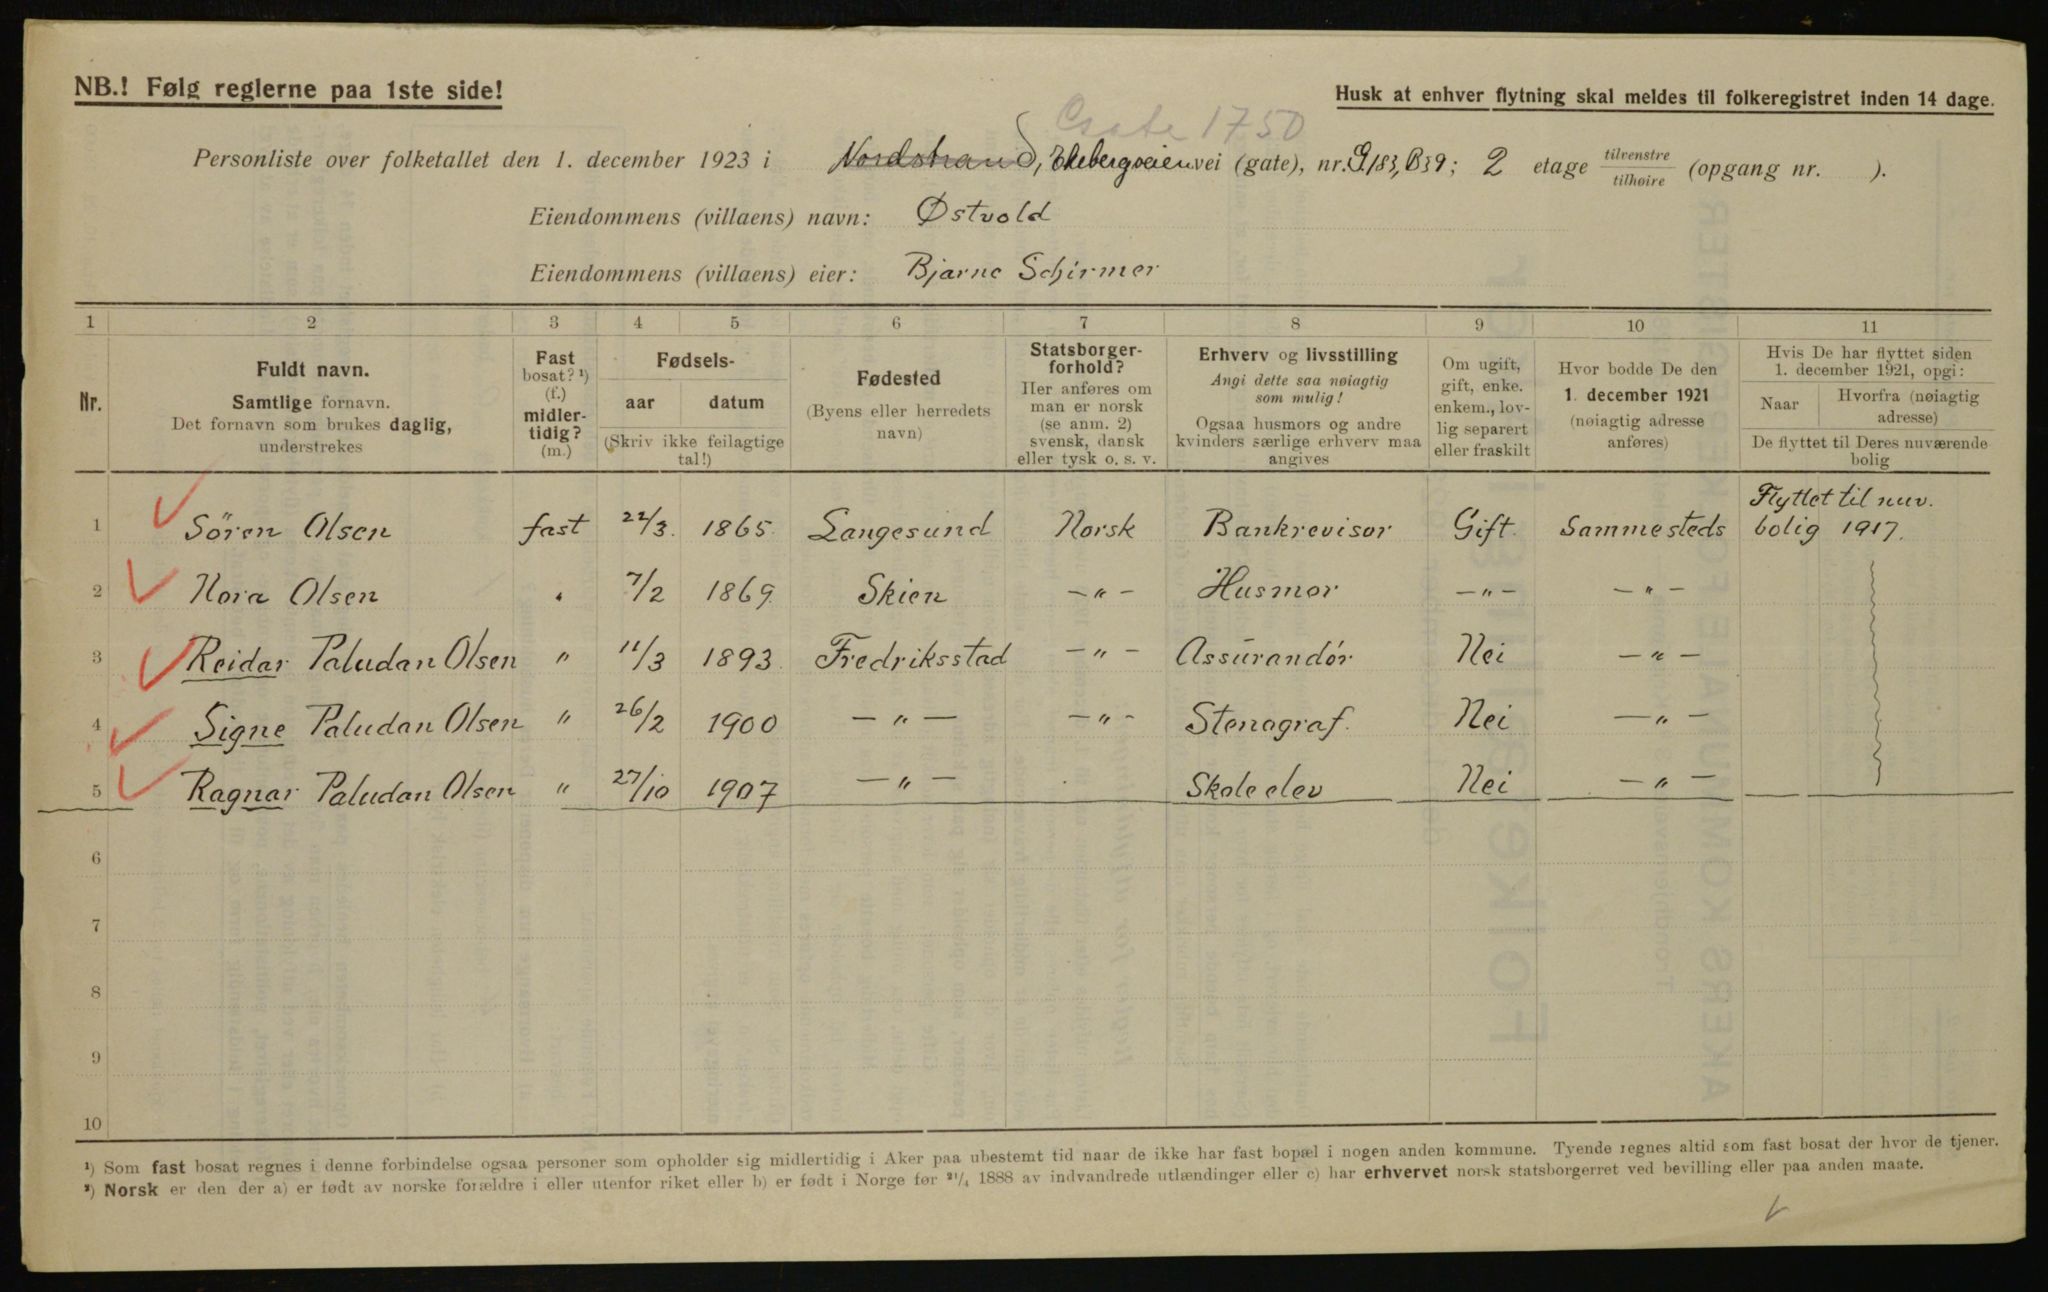 NB.! Følg reglerne paa 1ste side!
Husk at enhver flytning skal meldes til folkeregistret inden 14 dage.
1750
Personliste over folketallet den 1. december 1923 i Nordstrand, Ekebergveien vei (gate), nr. G.183, B39; 2 etage tilvenstre/tilhøire (opgang nr. ).
Eiendommens (villaens) navn: Østvold
Eiendommens (villaens) eier: Bjarne Schirmer
1 2 3 4 5 6 7 8 9 10 11
Nr.
Fuldt navn.
Samtlige fornavn.
Det fornavn som brukes daglig,
understrekes
Fast
bosat? ¹)
(f.)
midler-
tidig?
(m.)
Fødsels-
aar datum
(Skriv ikke feilagtige
tal!)
Fødested
(Byens eller herredets
navn)
Statsborger-
forhold?
Her anføres om
man er norsk
(se anm. 2)
svensk, dansk
eller tysk o. s. v.
Erhverv og livsstilling
Angi dette saa nøiagtig
som mulig!
Ogsaa husmors og andre
kvinders særlige erhverv maa
angives
Om ugift,
gift, enke.
enkem., lov-
lig separert
eller fraskilt
Hvor bodde De den
1. december 1921
(nøiagtig adresse
anføres)
Hvis De har flyttet siden
1. december 1921, opgi:
Naar
Hvorfra (nøiagtig
adresse)
De flyttet til Deres nuværende
bolig
1 Sören Olsen fast 22/3. 1865. Langesund Norsk Bankrevisor Gift. Sammesteds Flyttet til nuv.
bolig 1917.
2 Nora Olsen " 7/2 1869. Skien —"— Husmor —"— —"—
3 Reidar Paludan Olsen " 11/3 1893. Fredriksstad —"— Assurandör Nei —"—
4 Signe Paludan Olsen " 26/2 1900 —"— —"— Stenograf. Nei —"—
5 Ragnar Paludan Olsen " 27/10 1907 —"— Skoleelev Nei —"—
6
7
8
9
10
¹) Som fast bosat regnes i denne forbindelse ogsaa personer som opholder sig midlertidig i Aker paa ubestemt tid naar de ikke har fast bopæl i nogen anden kommune. Tyende regnes altid som fast bosat der hvor de tjener.
²) Norsk er den der a) er født av norske forældre i eller utenfor riket eller b) er født i Norge før ²¹/₄ 1888 av indvandrede utlændinger eller c) har erhvervet norsk statsborgerret ved bevilling eller paa anden maate.